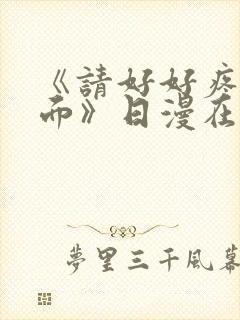 《請好好疼
而》日漫在
夢里三千風幕